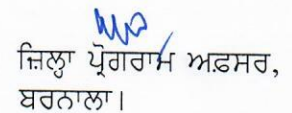 ਜ਼ਿਲ੍ਹਾ ਪ੍ਰੋਗਰਾਮ ਅਫ਼ਸਰ,
ਬਰਨਾਲਾ।